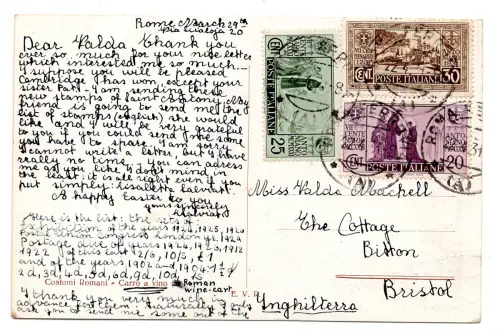 Rome March 29th
Via Eualoja 20
Dear Valda Thank you
ever so much for your nice letter
which interested me so much.
I suppose you will be pleased
Cambridge has won, except your
sister Pat! - I am sending these
new stamps of Saint Antony. My
friend is going to send me the
list of stamps (english) she would
like and I will be very grateful
to you if you could send me some
you have to spare. I am sorry I
cannot write a letter, but I have
really no time. you can address
me as you like I don't mind in
the least: it is all right even if you
put simply: Isaletta Salvati.
A happy Easter to you
yours sincerely
I Salvati
Here is the list: the sets of
exhibition of the years 1924, 1925, 1926
Postal Union Congress London £1, 1929
Postage due of years 1924, 1926, 1912
1922 of this last 1 2/6, 10/s, £1
and of the years 1902 and 1904 1½d
2d, 3d, 4d, 5d, 6d, 9d, 10d, 1s
Costumi Romani - Carro a vino
Roman
wine-cart
I thank you very much in
advance for them. Naturally don't
ask you to send me some out of the
E. V. R.
POSTE ITALIANE
CENT. 25
POSTE ITALIANE
CENT. 30
POSTE ITALIANE
CENT. 20
ROMA
Miss Valda Machell
The Cottage
Bitton
Bristol
Inghilterra